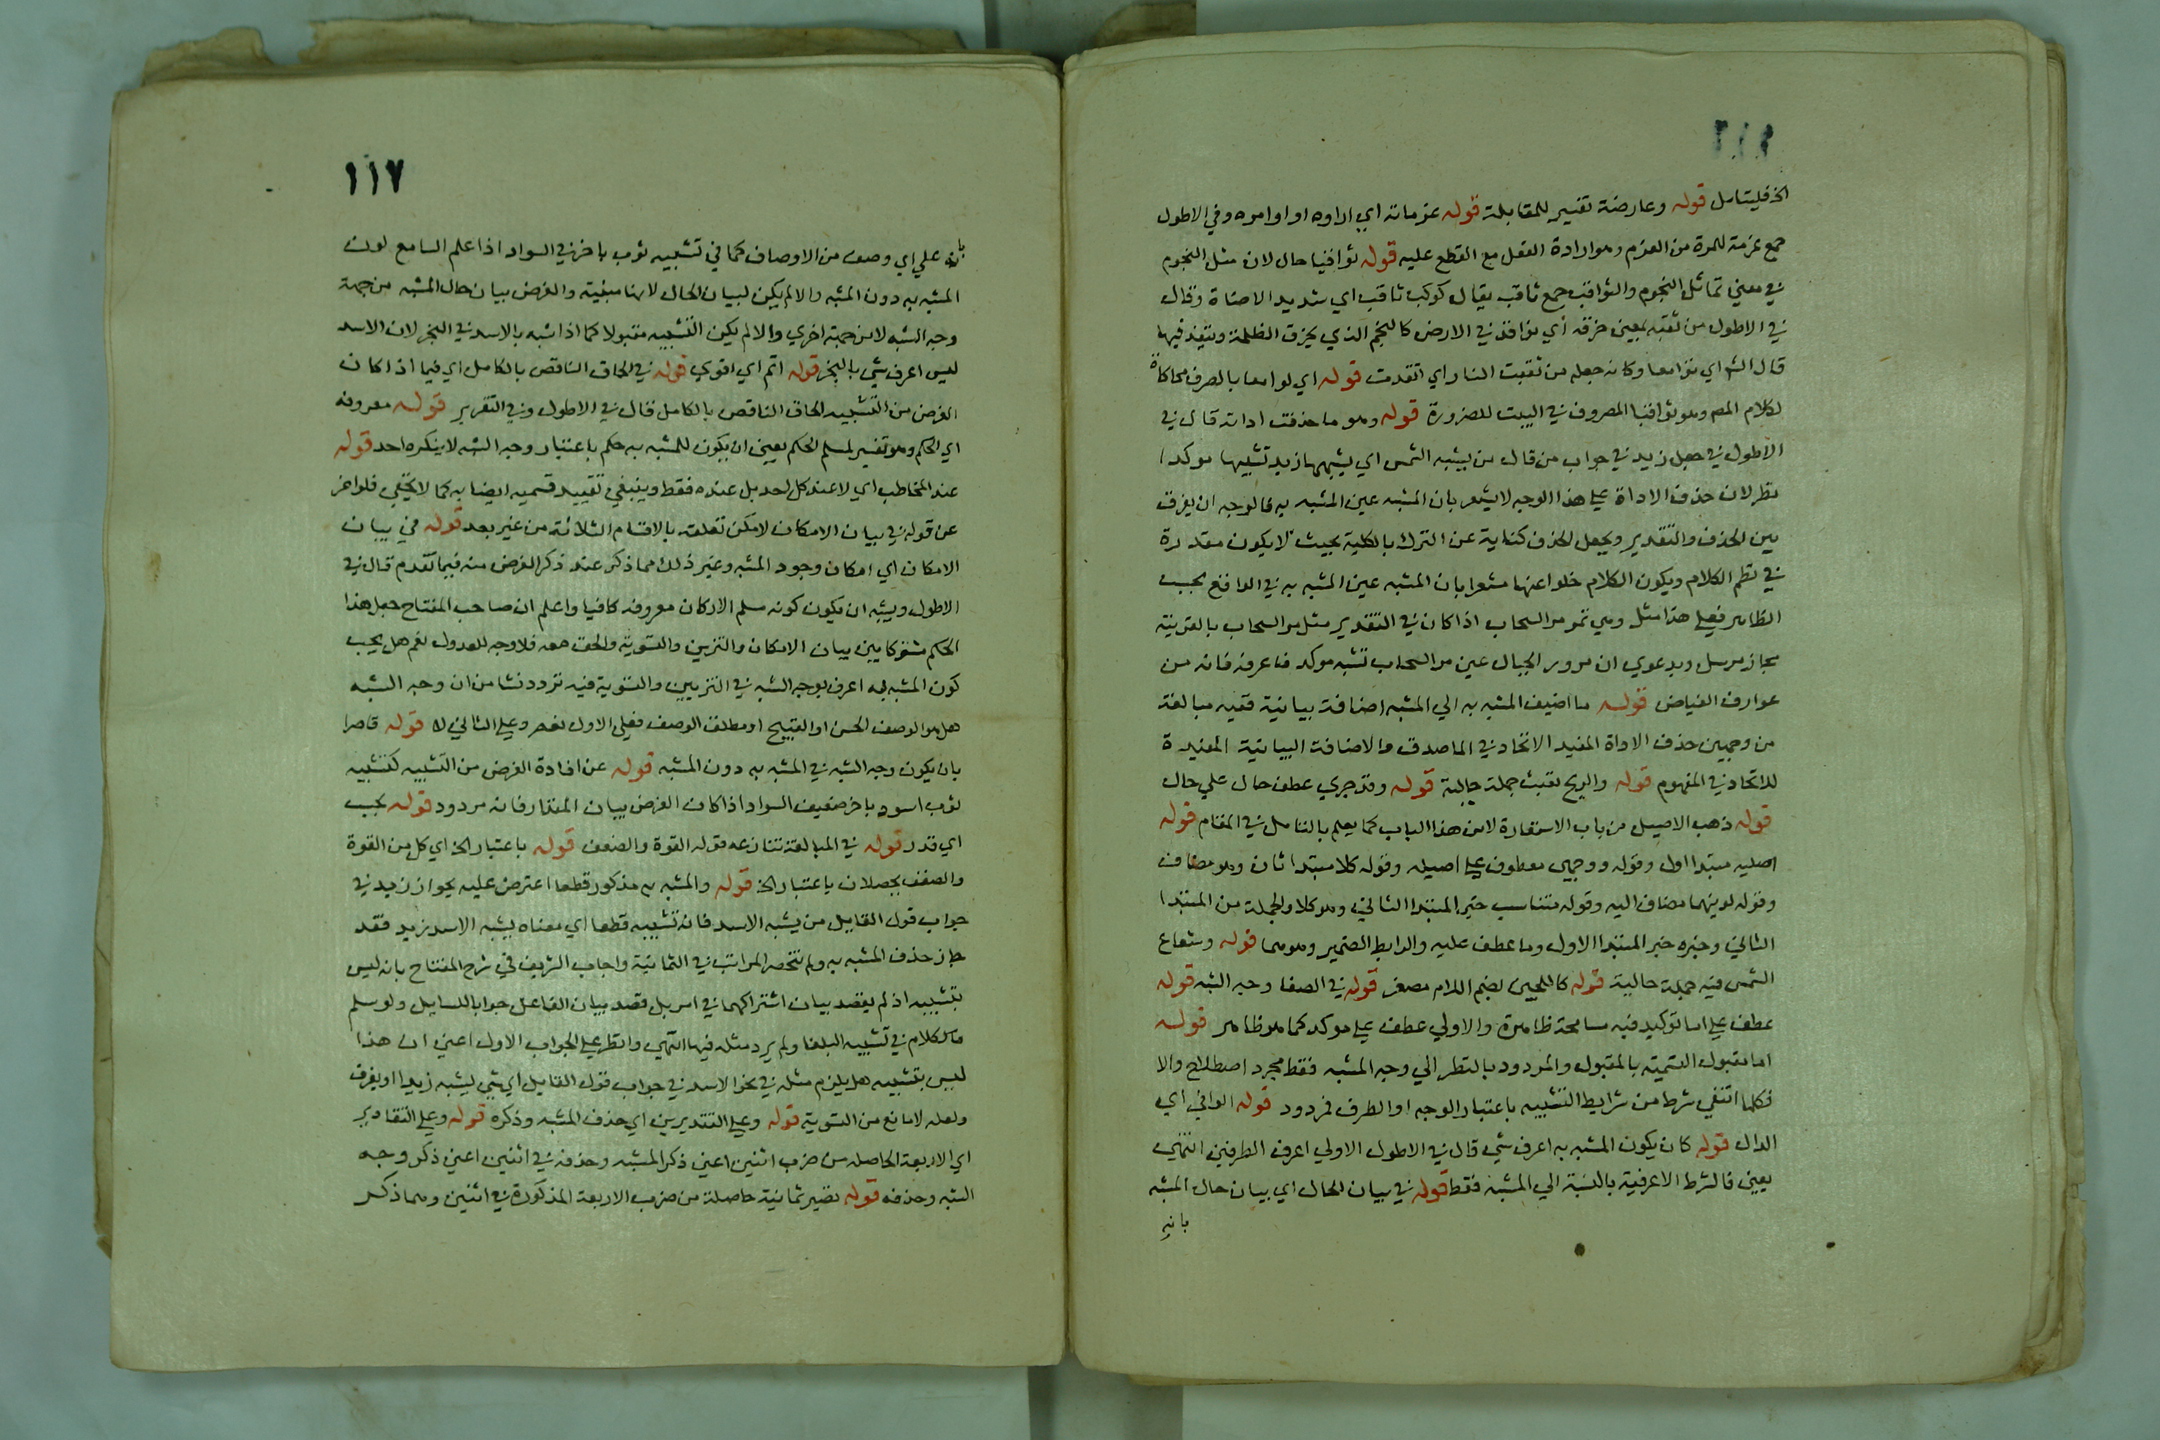 الخ فليتامل قوله وعارضة تفسير للمقابلة قوله عزماته اي اراوه او اوامره وفي الاطول
جمع عزمة للمرة من العزم وهو ارادة الفعل مع القطع عليه قوله ثواقبا حال لان مثل النجوم
في معني تماثل النجوم والثواقب جمع ثاقب يقال كوكب ثاقب اي شديد الاضاة وقال
في الاطول من ثقبه بمعني خرقه أي نوافذ في الارض كالنجم الذي يخرق الظلمة وينفذ فيها
قال الش اي لوامعا وكانه جعله من ثقبت النار اي اتقدت قوله اي لوامعا بالصرف محاكاة
لكلام المص وهو ثواقبا المصروف في البيت للضرورة قوله وهو ما حذفت اداته قال في
الاطول في جعل زيد في جواب من قال من يشبه الشمس اي يشبهها زيد تشبيها موكدا
نظر لان حذف الاداة علي هذا الوجه لا يشعر بان المشبه عين المشبه به فالوجه ان يفرق
بين الحذف والتقدير ويجعل الحذف كناية عن الترك بالكلية بحيث لا يكون مقدرة
في نظم الكلام ويكون الكلام خلوا عنها مشعرا بان المشبه عين المشبه به في الواقع بحسب
الظاهر فعلي هذا مثل وهي تمر مر السحاب اذا كان في التقدير مثل مر السحاب بالقرينة
مجاز مرسل وبدعوي ان مرور الجبال عين مر السحاب تشبه موكد فاعرفه فانه من
عوارف الفياض قوله ما اضيف المشبه به الي المشبه اضافة بيانية ففيه مبالغة
من وجهين حذف الاداة المفيد الاتحاد في الماصدق والاضافة البيانية المفيدة
للاتحاد في المفهوم قوله والريح تعبث جملة حالية قوله وقد جري عطف حال علي حال
قوله ذهب الاصيل من باب الاستعارة لا من هذا الباب كما يعلم بالتامل في المقام قوله
اصليه مبتدا اول وقوله ووجهي معطوف علي اصيله وقوله كلا مبتدا ثان وهو مضاف
وقوله لونيهما مضاف اليه وقوله متناسب خبر المبتدا الثاني وهو كلا والجملة من المبتدا
الثاني وخبره خبر المبتدا الاول وما عطف عليه والرابط الضمير وهو هما قوله وشعاع
الشمس فيه جملة حالية قوله كاللجين بضم اللام مصغر قوله في الصفا وجه الشبه قوله
عطف علي اما توكيد فيه مسامحة ظاهرة والاولي عطف علي موكد كما هو ظاهر قوله
اما مقبول التسمية بالمقبول والمردود بالنظر الي وجه المشبه فقط مجرد اصطلاح والا
فكلما انتفي شرط من شرايط التشبيه باعتبار الوجه او الطرف فمردود قوله الوافي اي
الدال قوله كان يكون المشبه به اعرف شي قال في الاطول الاولي اعرف الطرفين انتهي
يعني فالشرط الاعرفية بالنسبة الي المشبه فقط قوله في بيان الحال اي بيان حال المشبه
بانه
١١٧
بانه علي اي وصف من الاوصاف كما في تشبيه ثوب باخر في السواد اذا علم السامع لون
المشبه به دون المشبه والا لم يكن لبيان الحال لانها مبنية والغرض بيان حال المشبه من جهة
وجه الشبه لا من جهة اخري والا لم يكن التشبيه مقبولا كما اذا شبه بالاسد في البخر لان الاسد
ليس اعرف شي بالبخر قوله اتم اي اقوي قوله في الحاق الناقص بالكامل اي فيما اذا كان
الغرض من التشبيه الحاق الناقص بالكامل قال في الاطول وفي التقرير قوله معروفه
اي الحكم وهو تفسير لمسلم الحكم يعني ان يكون للمشبه به حكم باعتبار وجه الشبه لا ينكره احد قوله
عند المخاطب اي لا عند كل احد بل عنده فقط وينبغي تقييد قسميه ايضا به كما لا يخفي فلو اخر
عن قوله في بيان الامكان لامكن تعلقه بالاقسام الثلاثة من غير بعد قوله في بيان
الامكان اي امكان وجود المشبه وغير ذلك مما ذكر عند ذكر الغرض منه فيما تقدم قال في
الاطول ويشبه ان يكون كونه مسلم الاركان معروفه كافيا واعلم ان صاحب المفتاح جعل هذا
الحكم مشتركا بين بيان الامكان والتزيين والتسوية والحق معه فلا وجه للعدول نعم هل يجب
كون المشبه به اعرف بوجه الشبه في التزيين والتسوية فيه تردد نشا من ان وجه الشبه
هل هو الوصف الحسن او القبيح او مطلق الوصف فعلي الاول نعم وعلي الثاني لا قوله قاصرا
بان يكون وجه الشبه في المشبه به دون المشبه قوله عن افادة الغرض من التشبيه كتشبيه
ثوب اسود باخر ضعيف السواد اذا كان الغرض بيان المقدار فانه مردود قوله بحسب
اي قدر قوله في المبالغة تنازعه قوله القوة والضعف قوله باعتبار الخ اي كل من القوة
والضعف يحصلان باعتبار الخ قوله والمشبه به مذكور قطعا اعترض عليه بجواز زيد في
جواب قول القايل من يشبه الاسد فانه تشبيه قطعا اي معناه يشبه الاسد زيد فقد
جاز حذف المشبه به ولم تنحصر المراتب في الثمانية واجاب الشريف في شرح المفتاح بانه ليس
بتشبيه اذ لم يقصد بيان اشتراكهما في امر بل قصد بيان الفاعل جوابا للسايل ولو سلم
فالكلام في تشبيه البلغا ولم يرد مثله فيها انتهي وانظر علي الجواب الاول اعني ان هذا
ليس بتشبيه هل يلزم مثله في نحو الاسد في جواب قول القايل اي شي يشبه زيدا او يفرق
ولعله لا مانع من التسوية قوله وعلي التقديرين اي حذف المشبه وذكره قوله وعلي التقادير
اي الاربعة الحاصلة من ضرب اثنين اعني ذكر المشبه وحذفه في اثنين اعني ذكر وجه
الشبه وحذفه قوله تصير ثمانية حاصلة من ضرب الاربعة المذكورة في اثنين وهما ذكر